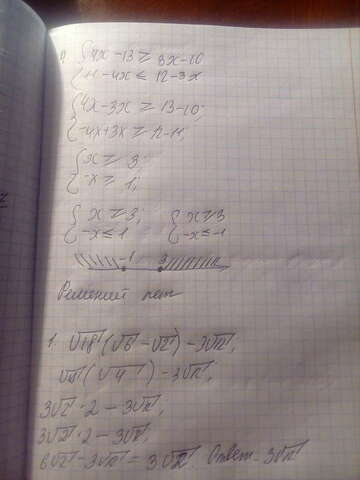 {4x-13≥3x-10
{11-4x≤12-3x
{4x-3x≥13-10;
{-4x+3x≥12-11;
{x≥3;
{-x≥1;
{x≥3; {x≥3
{-x≤1 {-x≤-1
-1 3
Решений нет
1. √18(√6-√2)-3√12;
√18(√4)-3√12;
3√2·2-3√12;
3√2·2-3√12;
6√2-3√12=3√2. Ответ 3√2